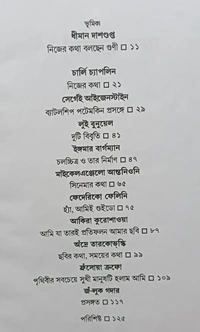 ভূমিকা
ধীমান দাশগুপ্ত
নিজের কথা বলছেন গুণী □ ১১
চার্লি চ্যাপলিন
নিজের কথা □ ২১
সের্গেই আইজেনস্টাইন
ব্যাটলশিপ পটেমকিন প্রসঙ্গে □ ২৯
লুই বুনুয়েল
দুটি বিবৃতি □ ৪১
ইঙ্গমার বার্গম্যান
চলচ্চিত্র ও তার নির্মাণ □ ৪৭
মাইকেলএঞ্জেলো আন্তনিওনি
সিনেমার কথা □ ৬৫
ফেদেরিকো ফেলিনি
হ্যাঁ, আমিই গুইডো □ ৭৫
আকিরা কুরোশাওয়া
আমি যা তারই প্রতিফলন আমার ছবি □ ৮৭
আঁদ্রে তারকোভস্কি
ছবির কথা, সময়ের কথা □ ৯৯
ফ্রঁসোয়া ত্রুফো
পৃথিবীর সবচেয়ে সুখী মানুষটি হলাম আমি □ ১০৯
জঁ-লুক গদার
প্রসঙ্গত □ ১১৭
পরিশিষ্ট □ ১২৫